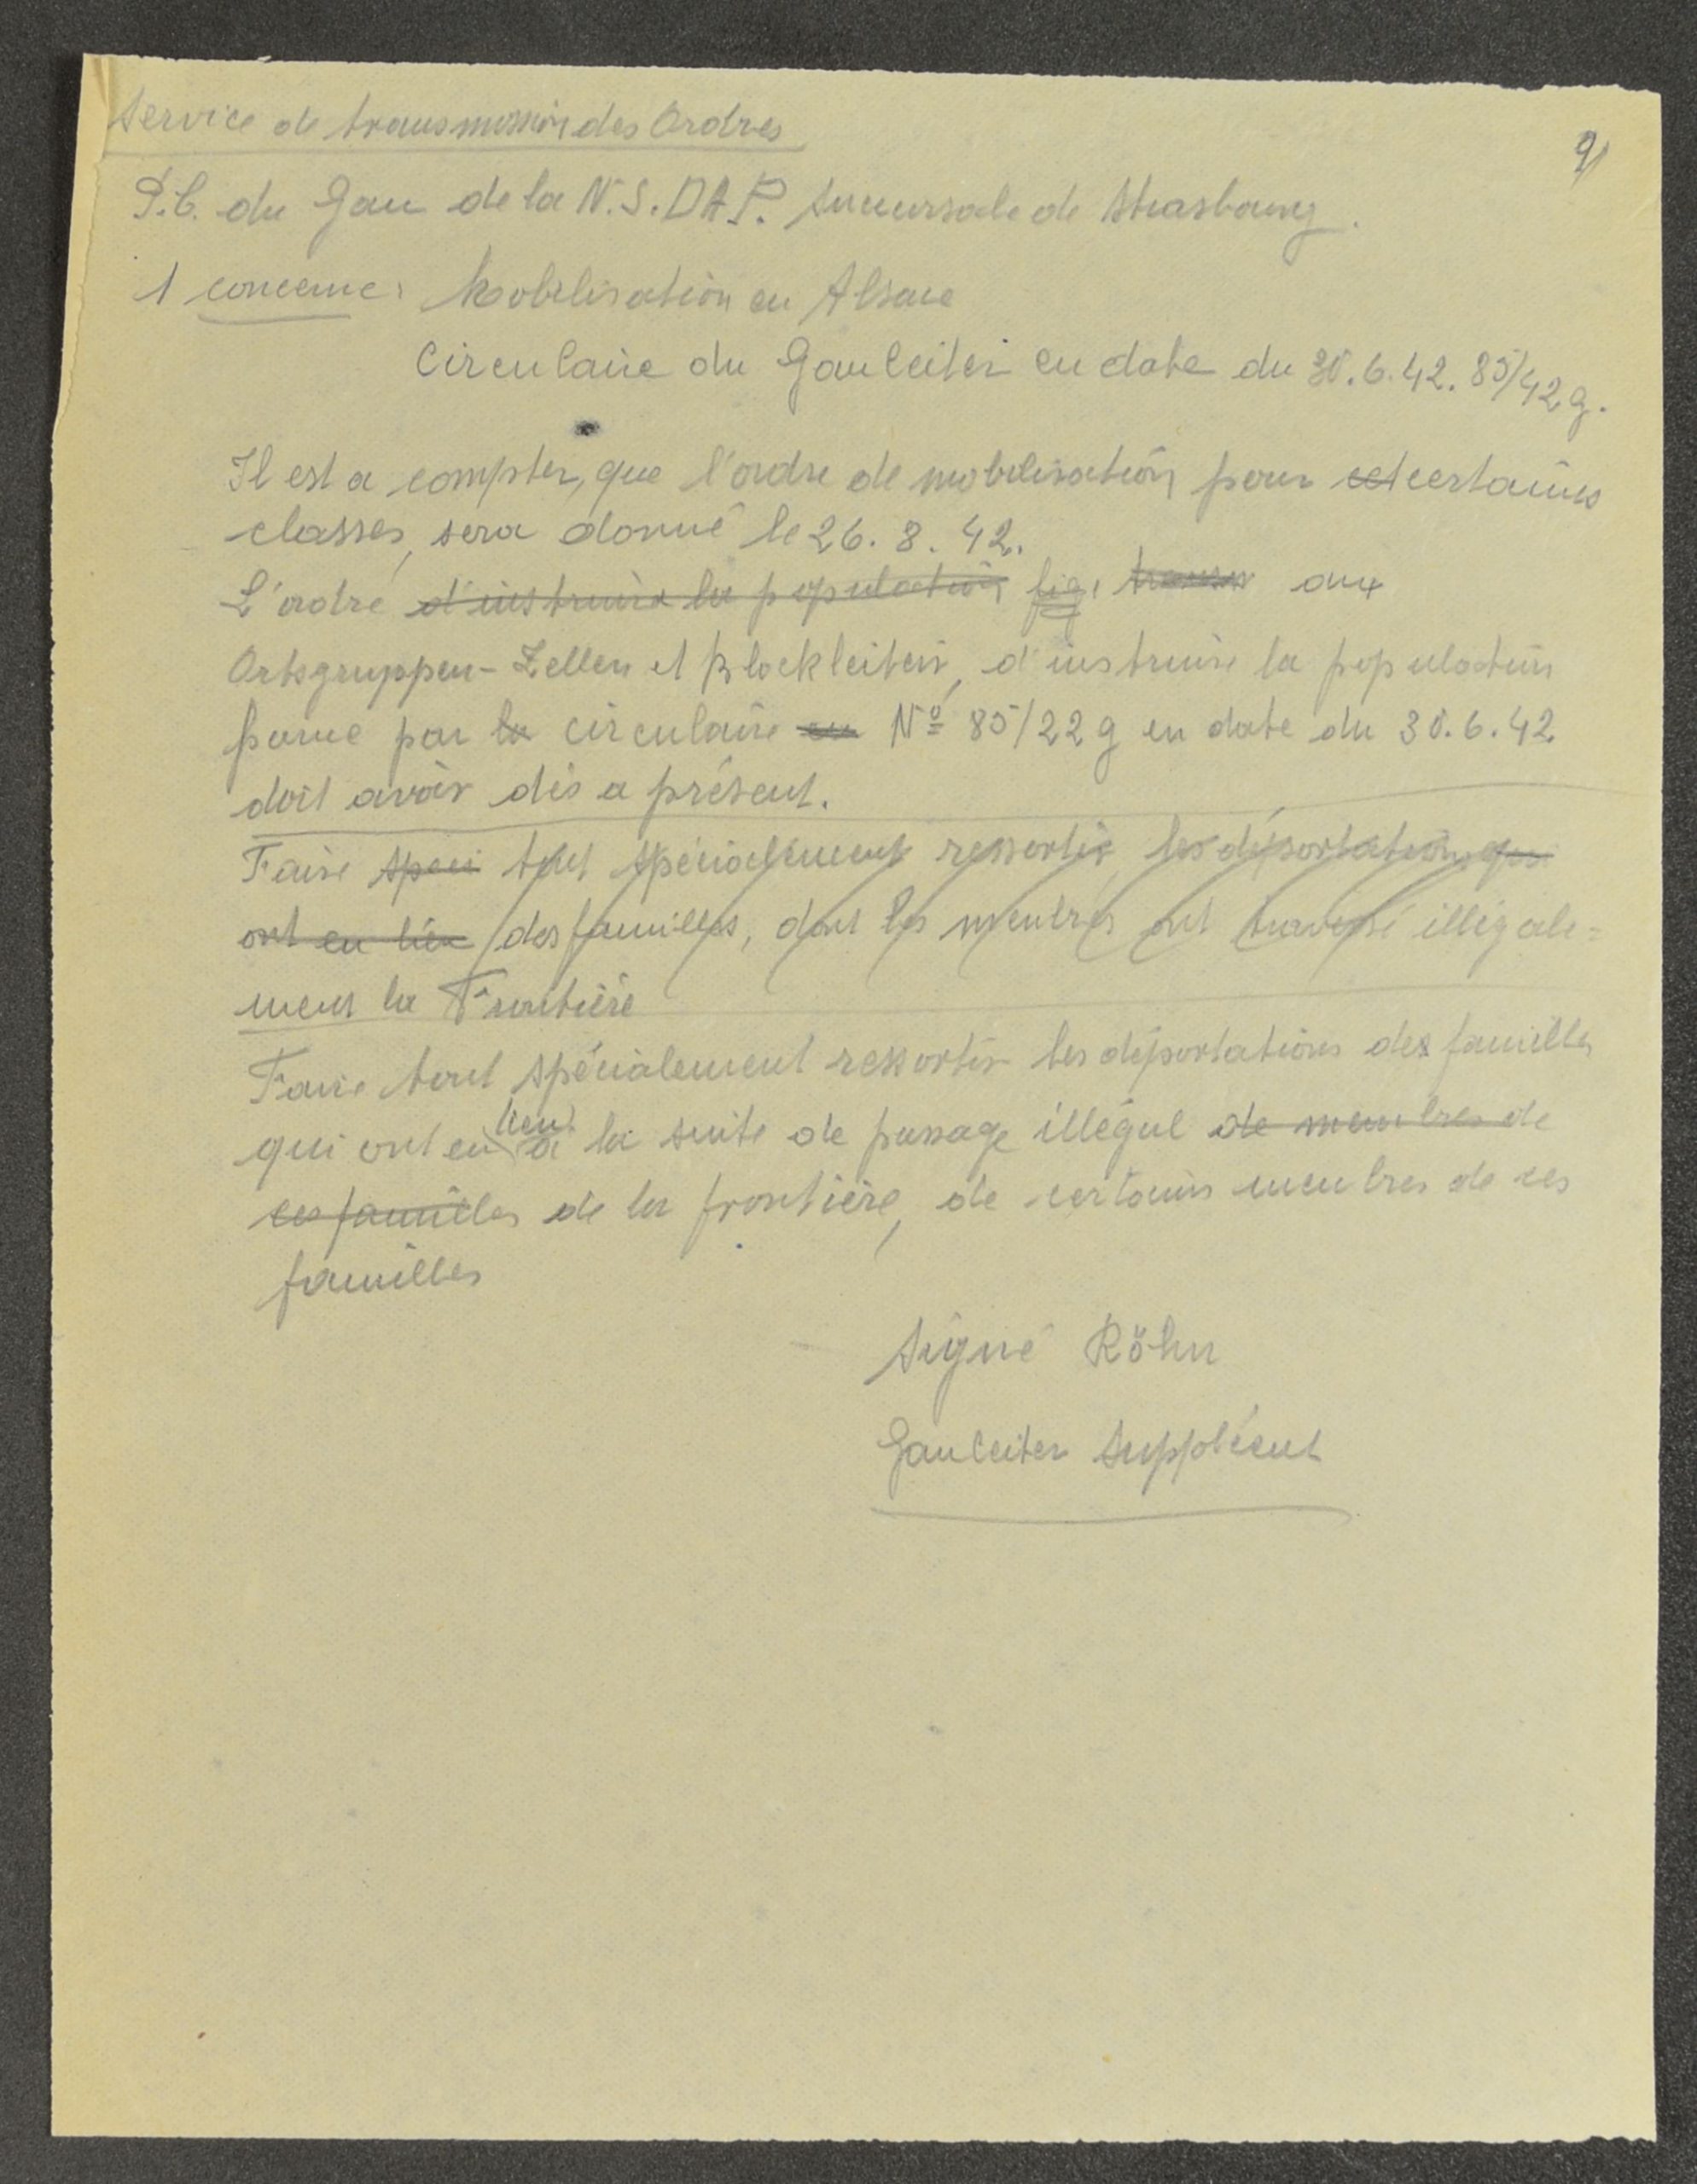 Service de transmission des Ordres
9
P.C. du Gau de la N.S.DAP. Succursale de Strasbourg.
1 concerne: Mobilisation en Alsace
Circulaire du Gauleiter en date du 30.6.42. 85/42 g.
Il est a compter, que l'ordre de mobilisation pour cet certaines
classes, sera donné le 26. 8. 42.
L'ordre d'instruire la population aux
Ortsgruppen- Zellen et Blockleiter, d'instruire la population
parue par la circulaire en Nº 85/22 g en date du 30.6.42
doit avoir dès a présent.
Faire speci tout spécialement ressortir, les déportations qui
ont eu lieu des familles, dont les membres ont traversé illégale=
ment la Frontière
Faire tout spécialement ressortir les déportations des familles
qui ont eu lieu à la suite de passage illégal de membres de
ces familles de la frontière, de certains membres de ces
familles
Signé Röhn
Gauleiter Suppléent